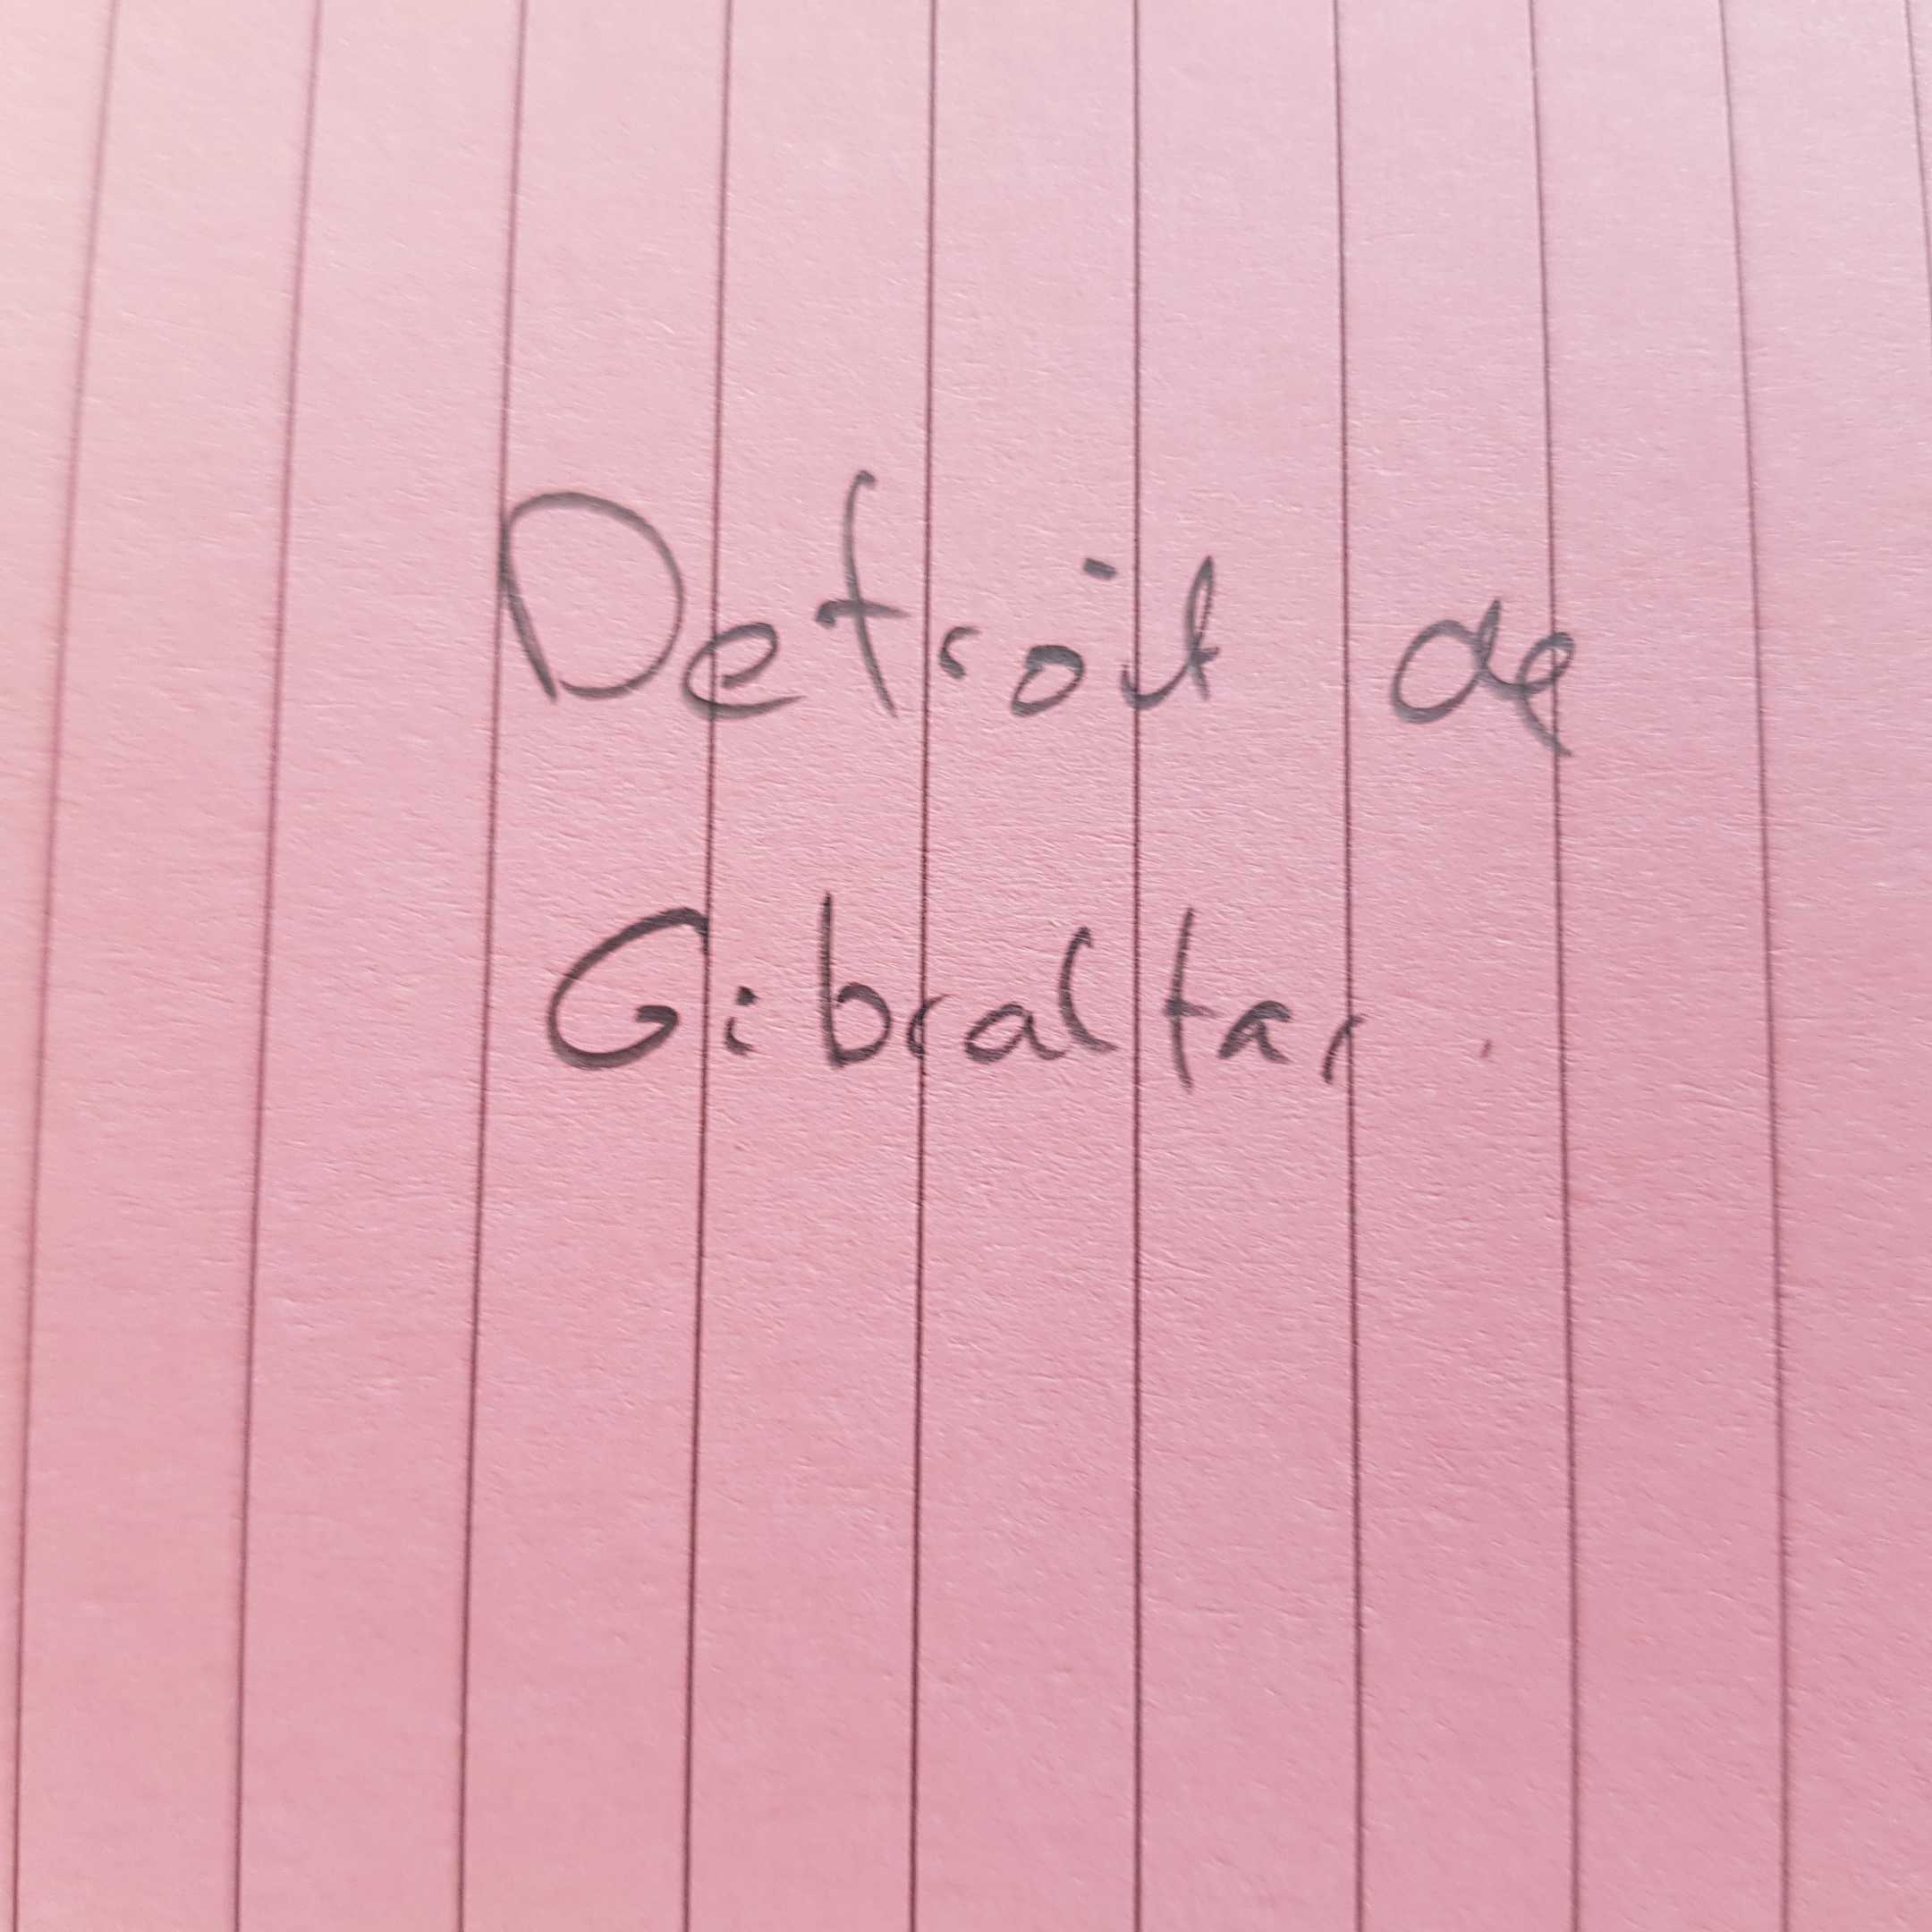 Detroit de
Gibraltar.